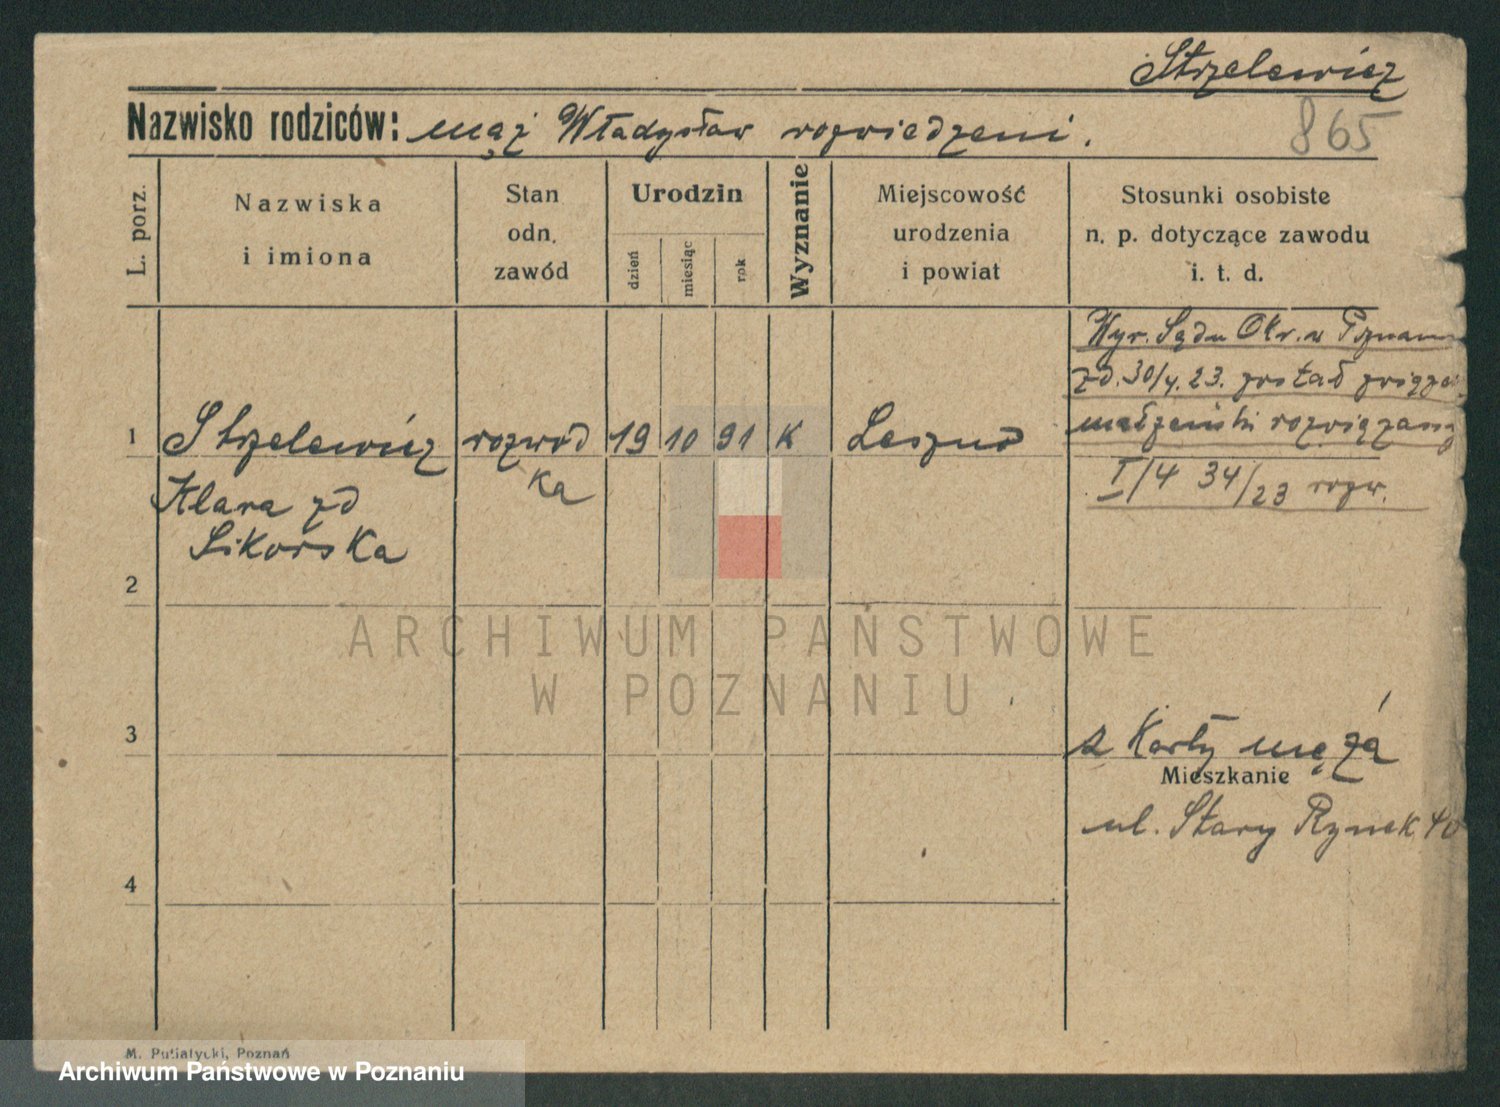 Strzelewicz
Nazwisko rodziców: mąż Władysław rozwiedzeni.
865
L. porz.
Nazwiska
i imiona
Stan
odn.
zawód
Urodzin
dzień
miesiąc
rok
Wyznanie
Miejscowość
urodzenia
i powiat
Stosunki osobiste
n. p. dotyczące zawodu
i. t. d.
Wyr. Sądu Okr. w Poznan
zd. 30/4. 23. został związe
małżeński rozwiązany
I/4 34/23 rozw.
1 Strzelewicz rozwód 19 10 91 K Leszno
ka
Klara zd
Sikorska
2
ARCHIWUM PAŃSTWOWE
W POZNANIU
3
z Karty męża
Mieszkanie
ul. Stary Rynek 40
4
M. Putiatycki, Poznań
Archiwum Państwowe w Poznaniu